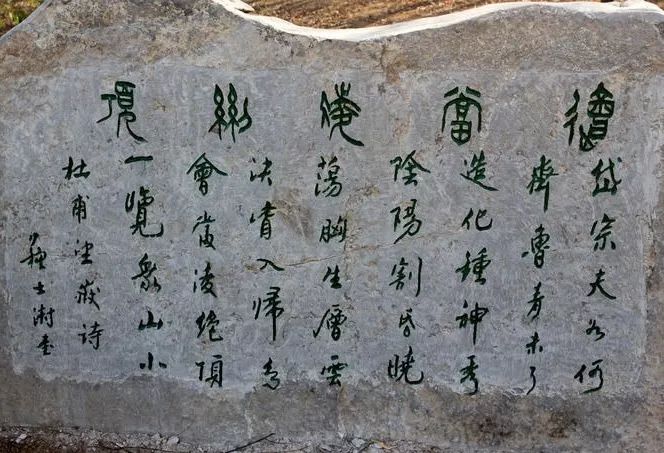 會當凌絕頂
岱宗夫如何
齊魯青未了
造化鍾神秀
陰陽割昏曉
蕩胸生層雲
決眥入歸鳥
會當凌絕頂
一覽眾山小
杜甫望嶽詩
蘇士澍書